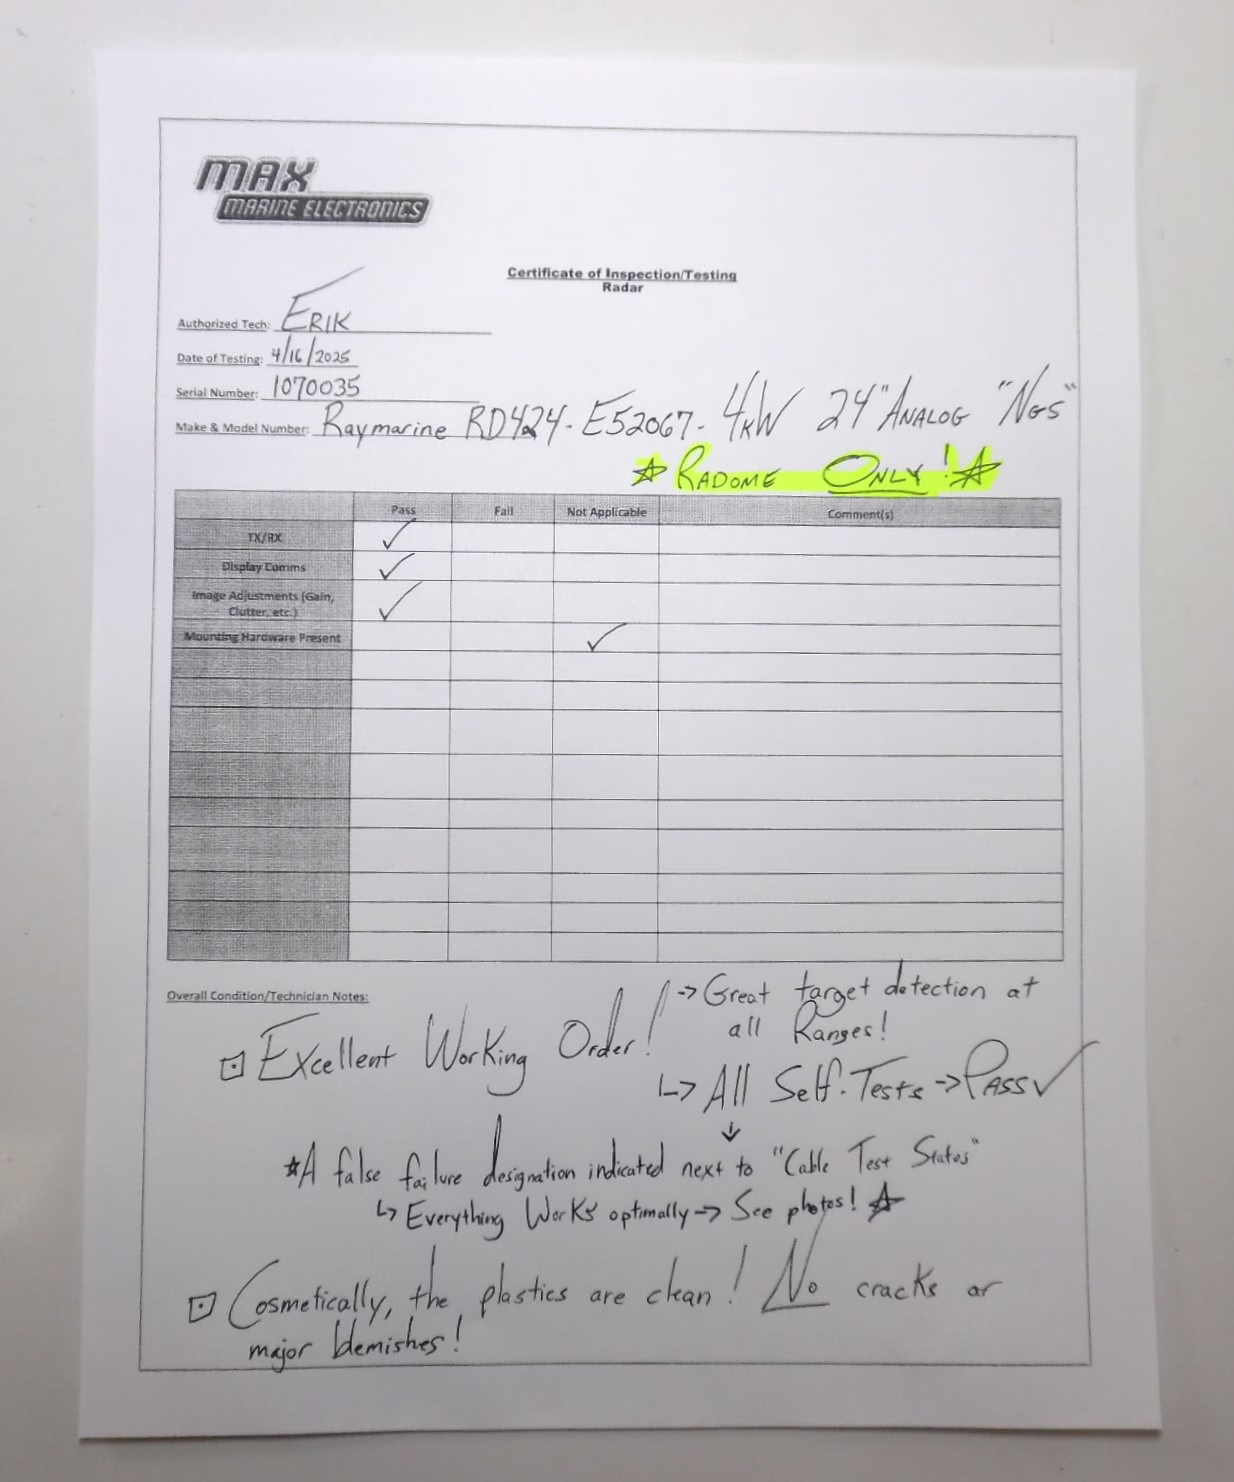 MAX
MARINE ELECTRONICS
Certificate of Inspection/Testing
Radar
Authorized Tech: ERIK
Date of Testing: 4/16/2025
Serial Number: 1070035
Make & Model Number: Raymarine RD424-E52067-4kW 24" ANALOG "NGS"
☆ RADOME ONLY! ☆
Pass Fail Not Applicable Comment(s)
TX/RX ✓
Display Comms ✓
Image Adjustments (Gain,
Clutter, etc.) ✓
Mounting Hardware Present ✓
Overall Condition/Technician Notes:
⊡ Excellent Working Order! -> Great target detection at
all Ranges!
↳ All Self-Tests -> PASS ✓
↓
☆ A false failure designation indicated next to "Cable Test Status"
↳ Everything Works optimally -> See photos! ☆
⊡ Cosmetically, the plastics are clean! No cracks or
major blemishes!